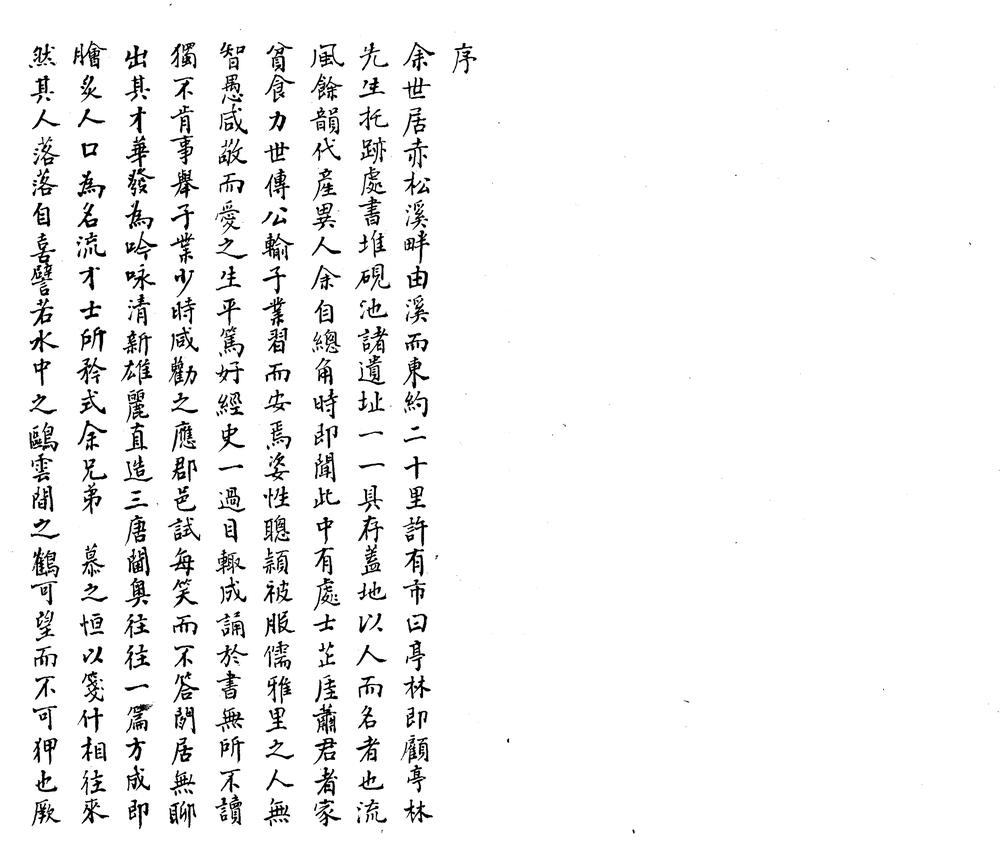 序
余世居赤松溪畔由溪而東約二十里許有市曰亭林即顧亭林
先生托跡處書堆硯池諸遺址一一具存蓋地以人而名者也流
風餘韻代產異人余自總角時即聞此中有處士芷厓蕭君者家
貧食力世傳公輸子業習而安焉姿性聰穎被服儒雅里之人無
智愚咸敬而愛之生平篤好經史一過目輙成誦於書無所不讀
獨不肯事舉子業少時咸勸之應郡邑試每笑而不答閒居無聊
出其才華發為吟咏清新雄麗直造三唐閫奧往往一篇方成即
膾炙人口為名流才士所矜式余兄弟 慕之恒以箋什相往來
然其人落落自喜譬若水中之鷗雲間之鶴可望而不可狎也厥